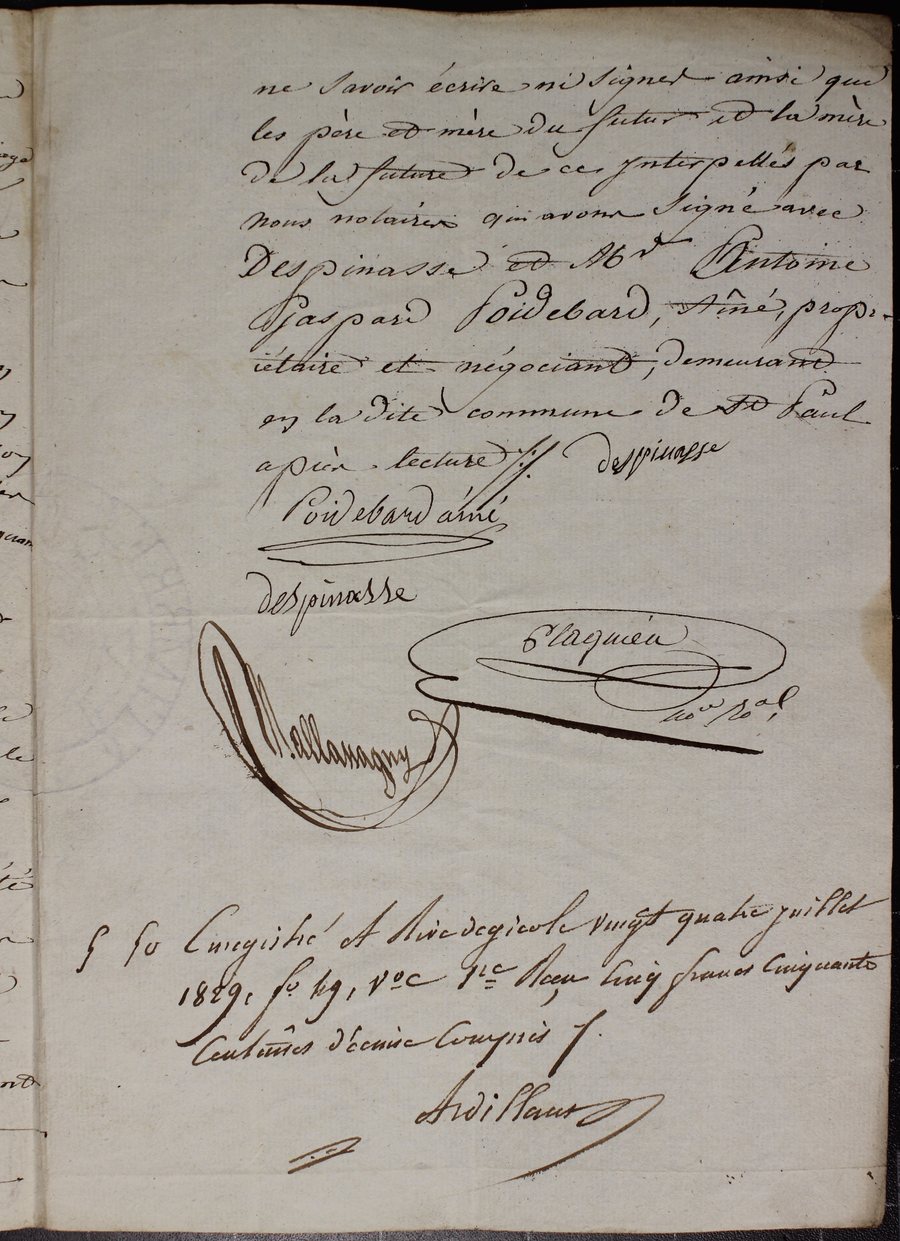 ne savoir écrire ni signer ainsi que
les père et mère du futur et la mère
de la future de ce interpellés par
nous notaires qui avons signé avec
Despinasse et Mr Antoine
Gaspard Poidebard, aîné, propr-
iétaire et négociant, demeurant
en la dite commune de St Paul
après lecture //. despinasse
Poidebard ainé
despinasse
Plaquiéu
nore Roal,
Mallassagny
5 50 Enregistré à Rivedegicole vingt quatre juillet
1829, fo 49, Vo c 1re Reçu Cinq francs Cinquante
Centimes décime Compris /.
Ardillaut